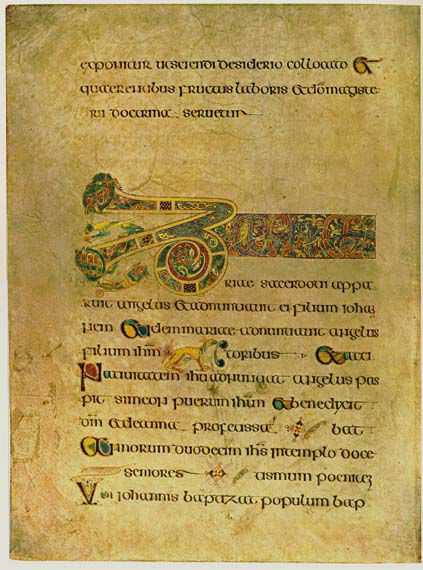 exponitur ut sciendi desiderio collocato &
quaerentibus fructus laboris & dō magiste
rii doctrina seruetur
riae sacerdoti appa
ruit angelus & adnuntiauit ei filium iohan
nem & mariae adnuntiauit angelus
filium ihm toribus & acci
Natiuitatem ihu adnuntiat angelus pas
pit simeon puerum ihm & benedixit
dm & de anna professa bat
Annorum duodecim ihs in templo doce
seniores tismum
Ubi iohannis baptizat populum bap